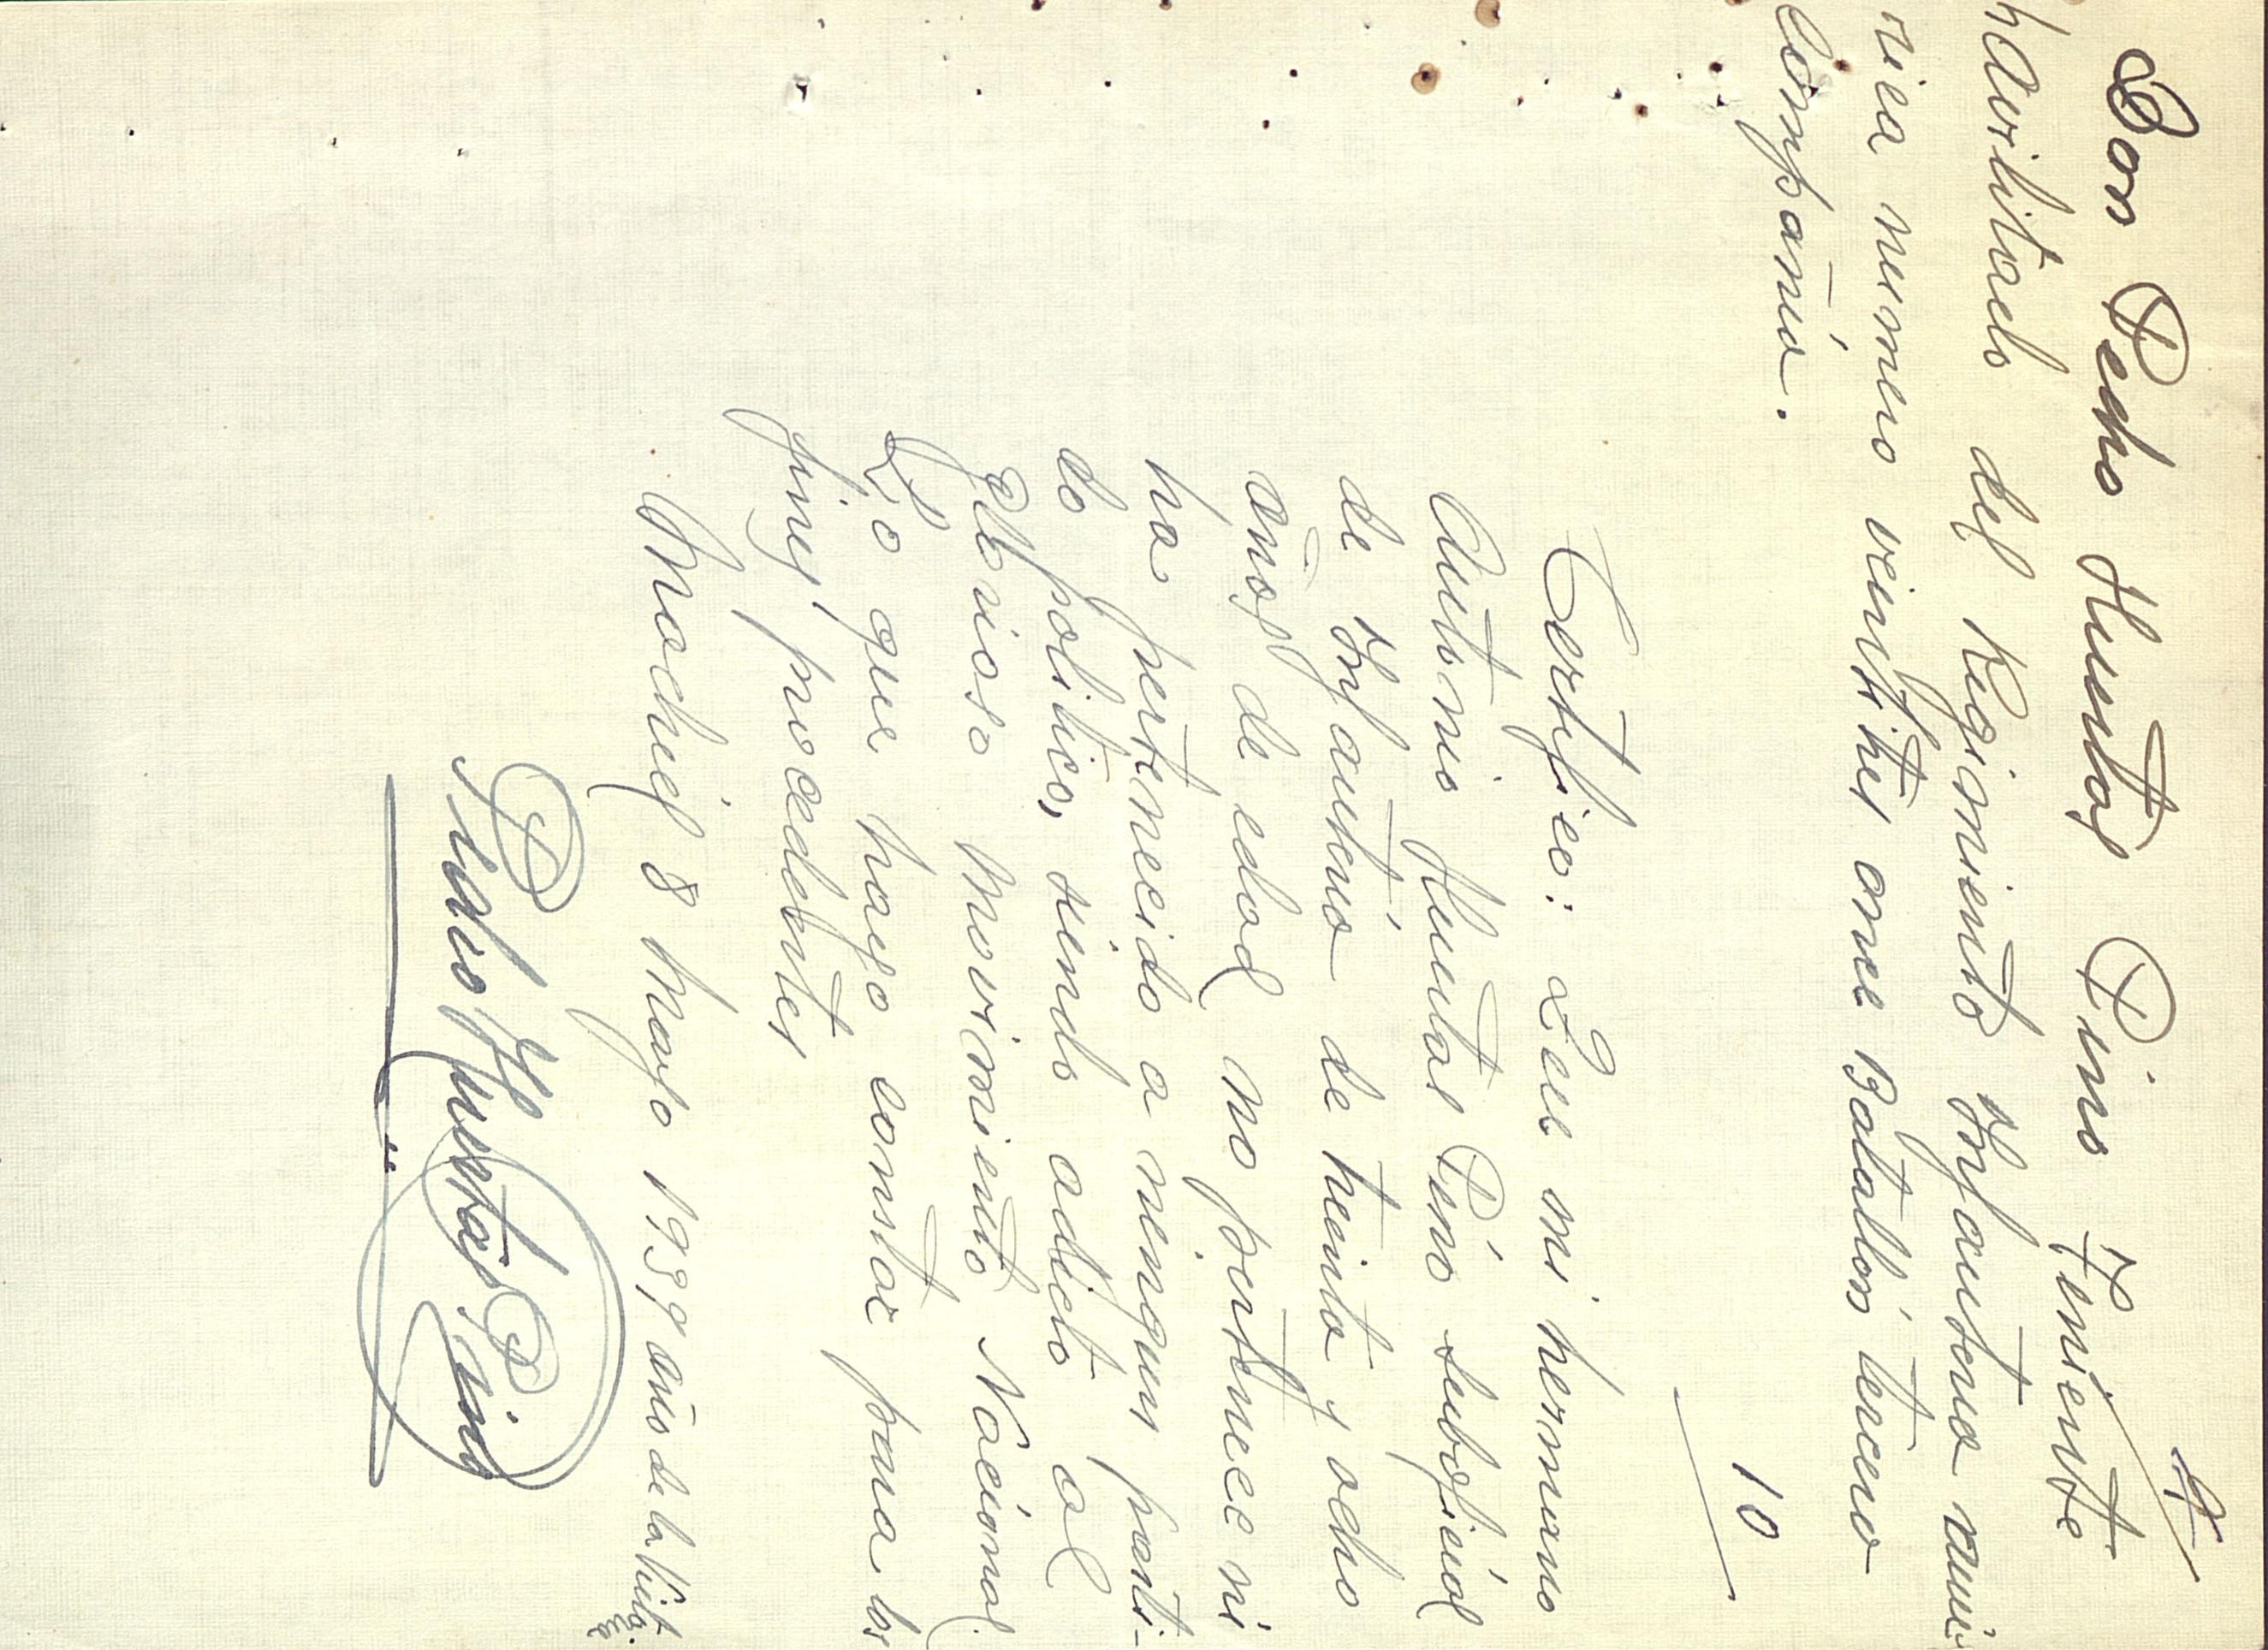 9
Don Pedro Huertas Pino Teniente
habilitado del Regimiento Infanteria numé
rica numero veintitres once Batallon tercera
Compañia.
10
Certifico: Que mi hermano
Antonio Huertas Pino suboficial
de Infanteria de treinta y ocho
años de edad no pertenece ni
ha pertenecido a ningun parti-
do politico, siendo adicto al
Glorioso Movimiento Nacional.
Lo que hago constar para los
fines procedentes
Madrid 8 Mayo 1939 año de la Victoria.
Pedro Huertas Pino